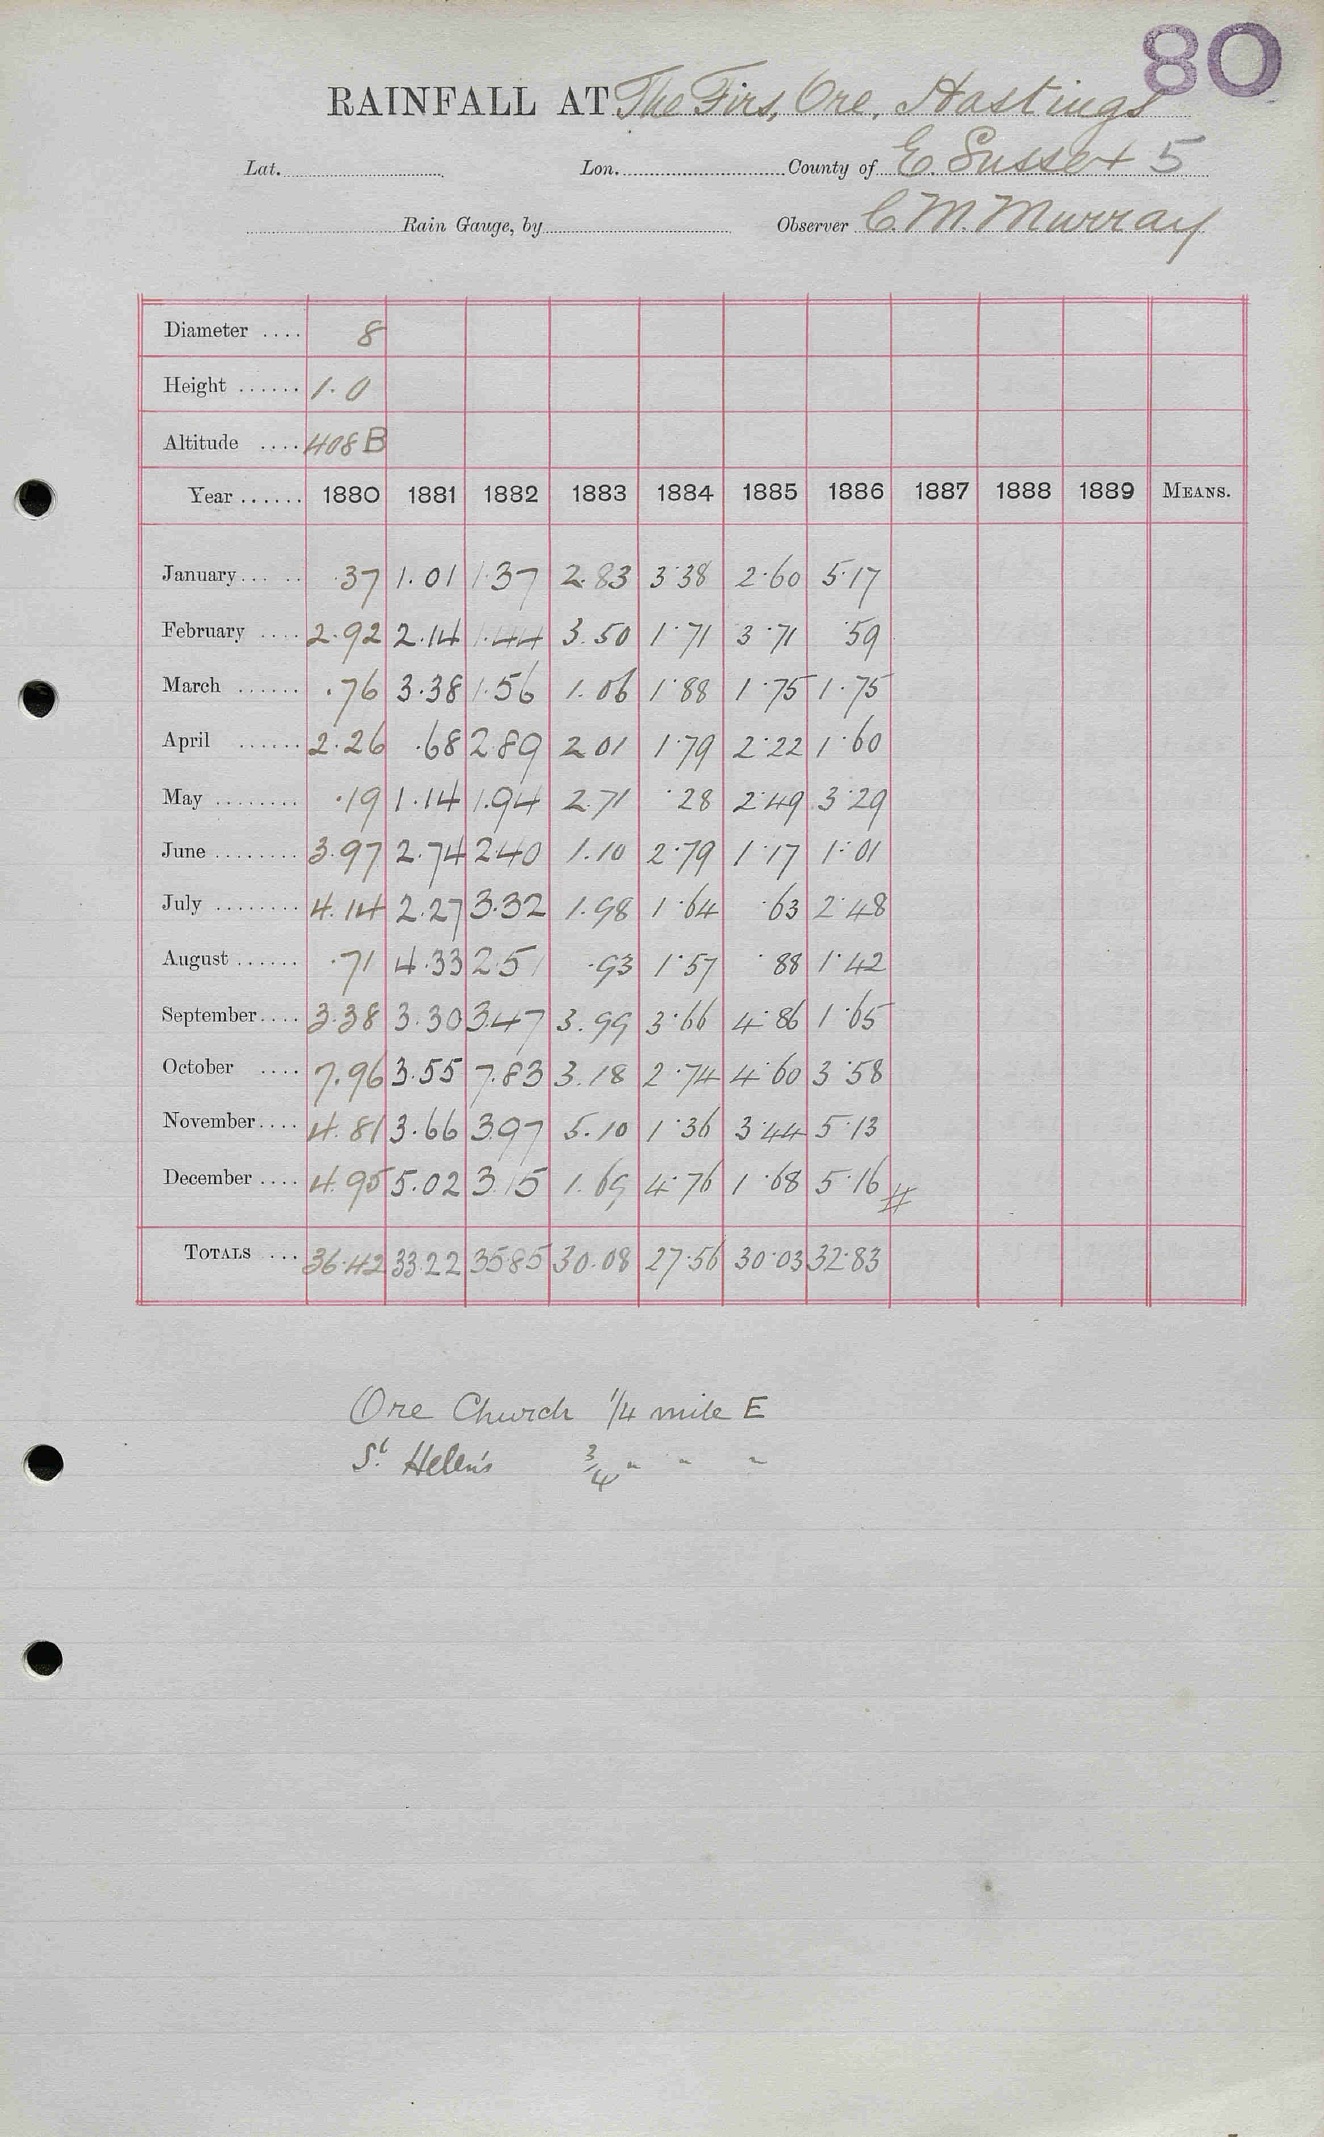 80
RAINFALL AT The Firs, Ore, Hastings
Lat. Lon. County of E. Sussex 5
Rain Gauge, by Observer C. M. Murray
Diameter .... 8
Height ...... 1.0
Altitude .... 408 B
Year ...... 1880 1881 1882 1883 1884 1885 1886 1887 1888 1889 MEANS.
January ... .. .37 1.01 1.37 2.83 3.38 2.60 5.17
February .... 2.92 2.14 1.44 3.50 1.71 3.71 .59
March ...... .76 3.38 1.56 1.06 1.88 1.75 1.75
April ...... 2.26 .68 2.89 2.01 1.79 2.22 1.60
May ........ .19 1.14 1.94 2.71 .28 2.49 3.29
June ........ 3.97 2.74 2.40 1.10 2.79 1.17 1.01
July ........ 4.14 2.27 3.32 1.98 1.64 .63 2.48
August ...... .71 4.33 2.51 .93 1.57 .88 1.42
September .... 3.38 3.30 3.47 3.99 3.66 4.86 1.65
October .... 7.96 3.55 7.83 3.18 2.74 4.60 3.58
November .... 4.81 3.66 3.97 5.10 1.36 3.44 5.13
December .... 4.95 5.02 3.15 1.69 4.76 1.68 5.16 #
TOTALS ... 36.42 33.22 35.85 30.08 27.56 30.03 32.83
Ore Church 1/4 mile E
St. Helen's 3/4 " " "